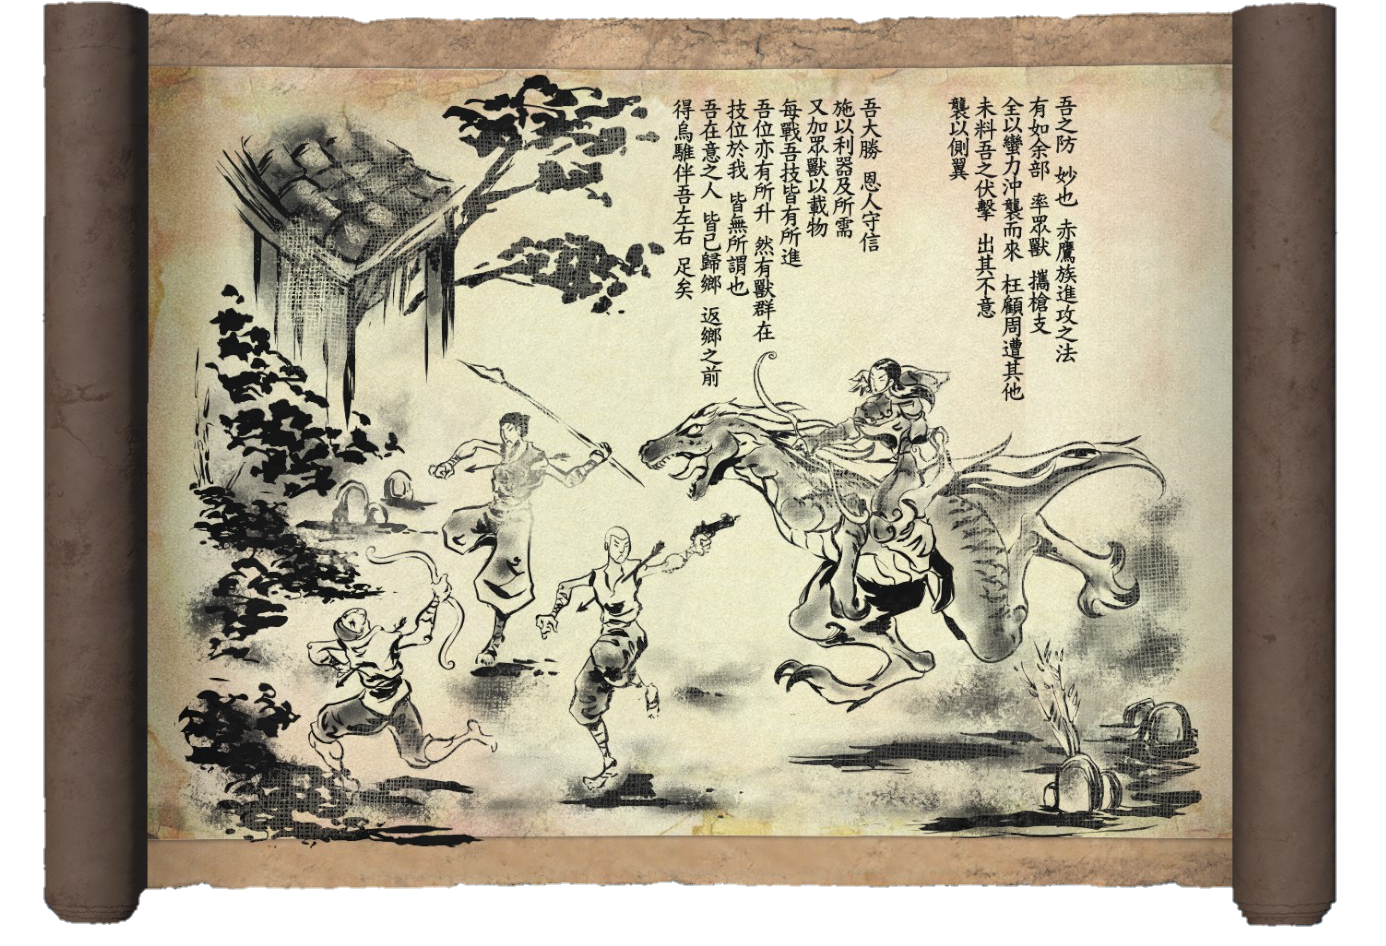 吾之防 妙也 赤鷹族進攻之法
有如余部 率眾獸 攜槍支
全以蠻力沖襲而來 枉顧周遭其他
未料吾之伏擊 出其不意
襲以側翼
吾大勝 恩人守信
施以利器及所需
又加眾獸以載物
每戰吾技皆有所進
吾位亦有所升 然有獸群在
技位於我 皆無所謂也
吾在意之人 皆已歸鄉 返鄉之前
得烏騅伴吾左右 足矣